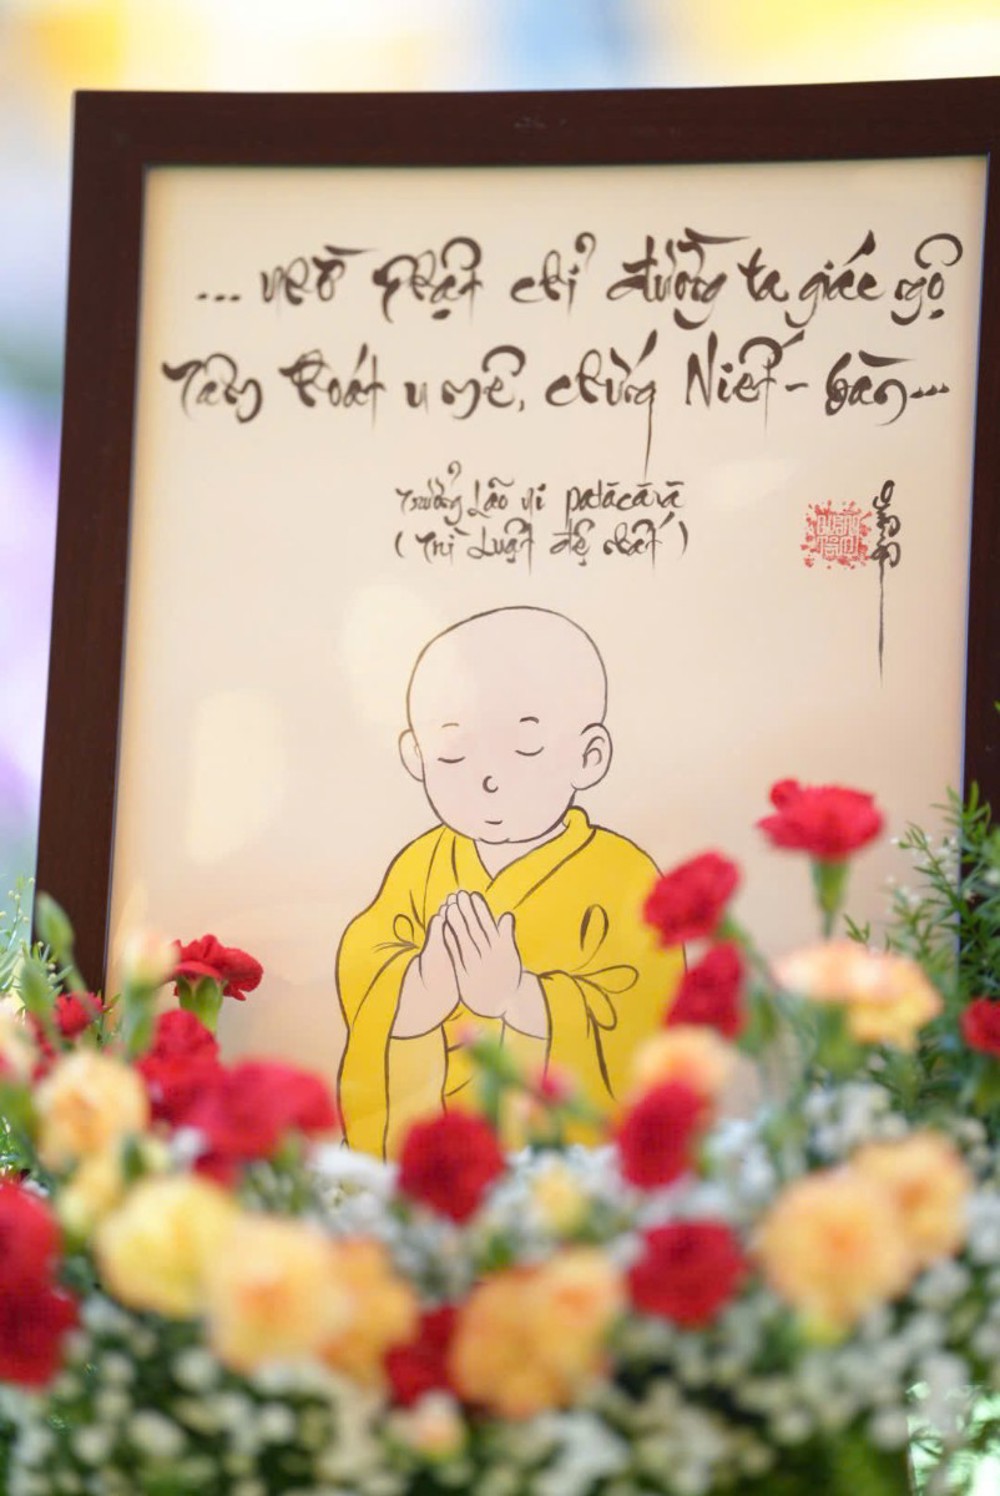 ... nhờ Phật chỉ đường ta giác ngộ
Tâm thoát u mê, chứng Niết - bàn...
Trưởng Lão Ni Paṭācārā
( Trì Luật đệ nhất )